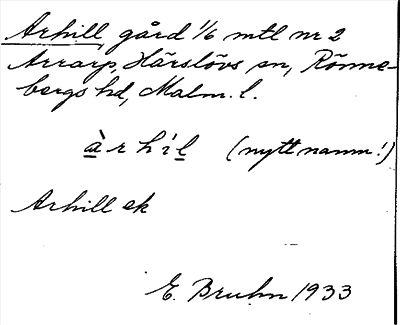 Arhill, gård 1/6 mtl nr 2
Arrarp, Härslövs sn, Rönne-
bergs hd, Malm. l.
àrhíl (nytt namn!)
Arhill ek
E. Bruhn 1933